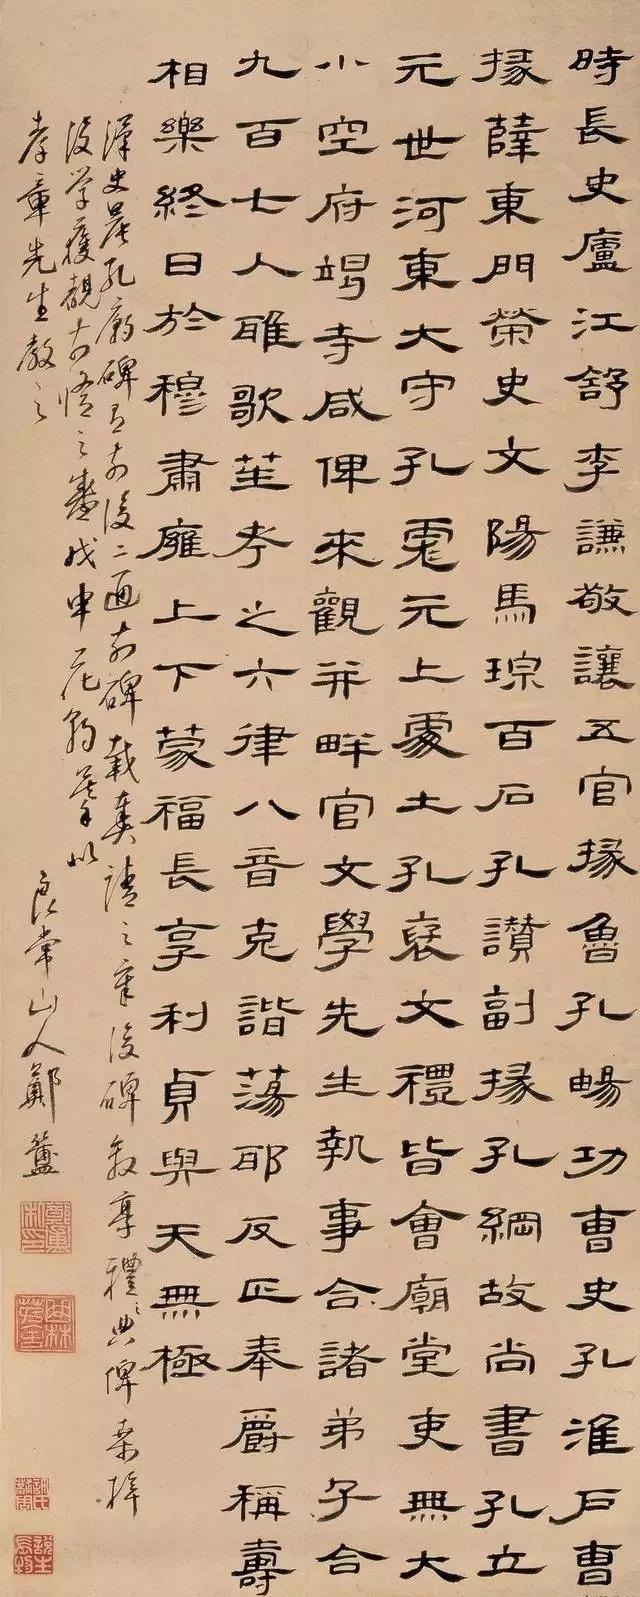 時長史廬江舒李謙敬讓五官掾魯孔暢功曹史孔淮戶曹
掾薛東門榮史文陽馬琮百石孔讃副掾孔綱故尚書孔立
元世河東大守孔彪元上處土孔襃文禮皆會廟堂吏無大
小空府竭寺咸俾來觀并畔官文學先生執事合諸弟子合
九百七人雅歌莖考之六律八音克諧蕩耶反正奉爵稱壽
相樂終日於穆肅廱上下蒙福長享利貞與天無極
漢史晨孔廟碑有前後二通前碑載奏請之章後碑敘享禮之典俾
後學獲觀 戊申花朝 以
孝章先生教之
良常山人鄭簠